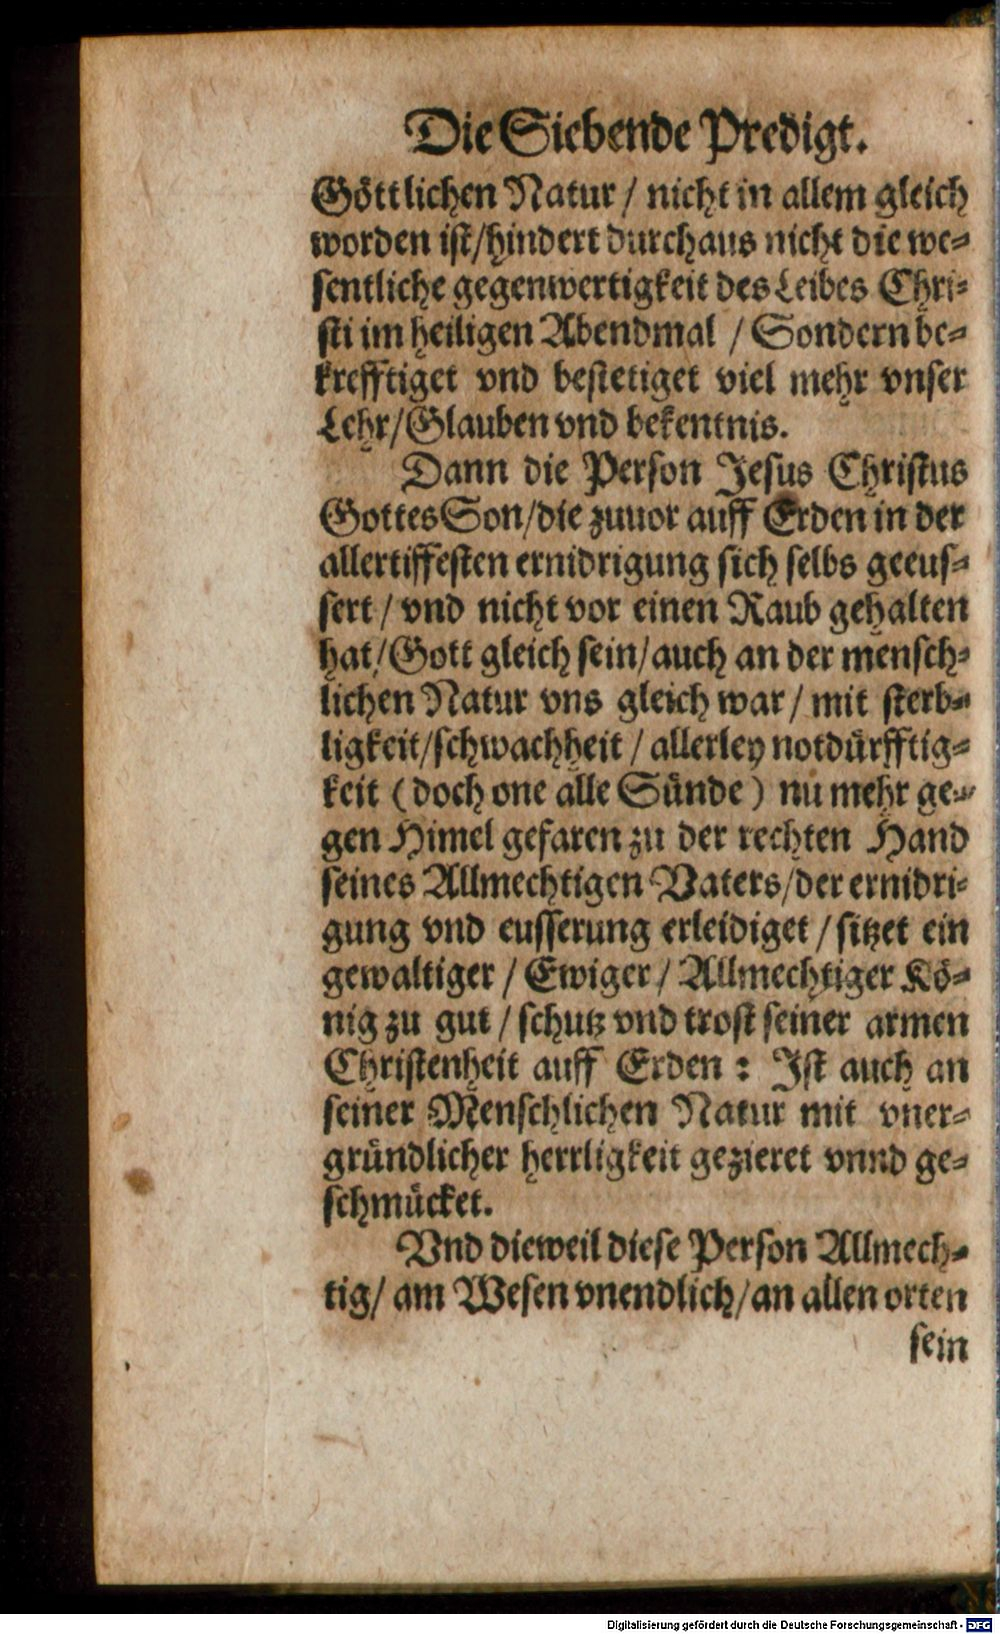 Die Siebende Predigt.
Göttlichen Natur / nicht in allem gleich
worden ist/hindert durchaus nicht die we-
sentliche gegenwertigkeit des Leibes Chri-
sti im heiligen Abendmal / Sondern be-
krefftiget vnd bestetiget viel mehr vnser
Lehr/Glauben vnd bekentnis.
Dann die Person Jesus Christus
Gottes Son/die zuuor auff Erden in der
allertiffesten ernidrigung sich selbs geeus-
sert / vnd nicht vor einen Raub gehalten
hat/Gott gleich sein/auch an der mensch-
lichen Natur vns gleich war / mit sterb-
ligkeit/schwachheit / allerley notdürfftig-
keit (doch one alle Sünde) nu mehr ge-
gen Himel gefaren zu der rechten Hand
seines Allmechtigen Vaters/der ernidri-
gung vnd eusserung erleidiget / sitzet ein
gewaltiger / Ewiger / Allmechtiger Kö-
nig zu gut / schutz vnd trost seiner armen
Christenheit auff Erden : Ist auch an
seiner Menschlichen Natur mit vner-
gründlicher herrligkeit gezieret vnnd ge-
schmücket.
Vnd dieweil diese Person Allmech-
tig/ am Wesen vnendlich/an allen orten
sein
Digitalisierung gefördert durch die Deutsche Forschungsgemeinschaft - DFG